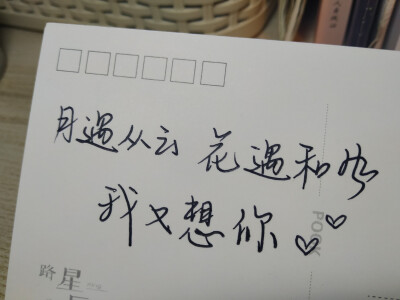 月遇从云 花遇和风
我又想你♡♡
POCK
路星